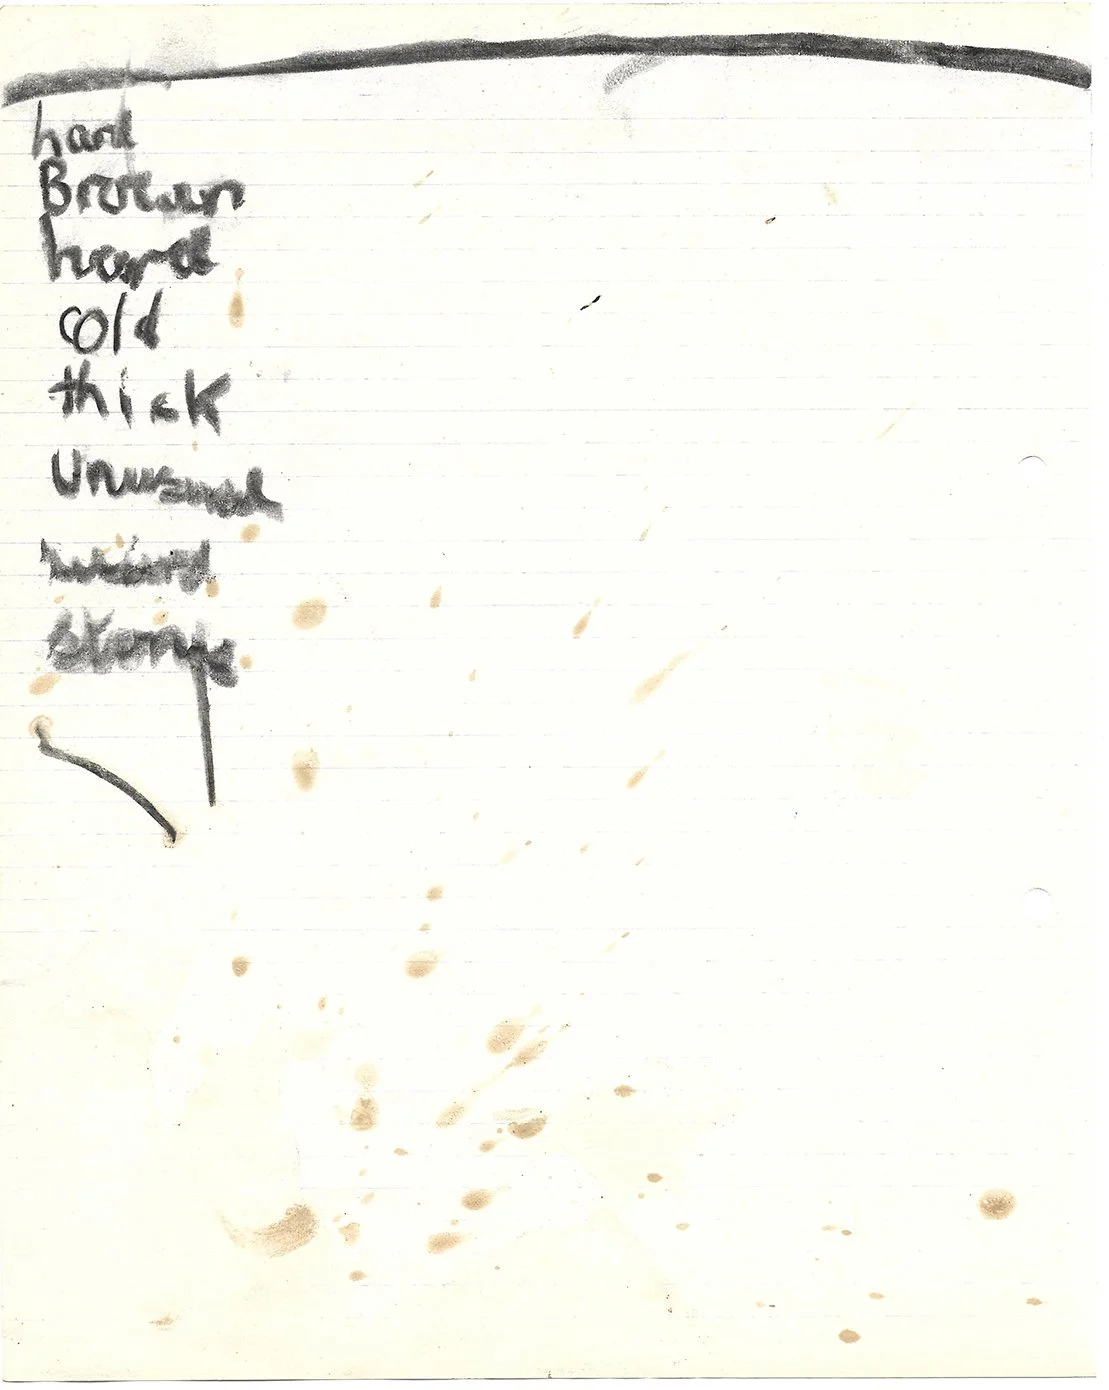 hard
Brown
hard
cold
thick
Unusual
weird